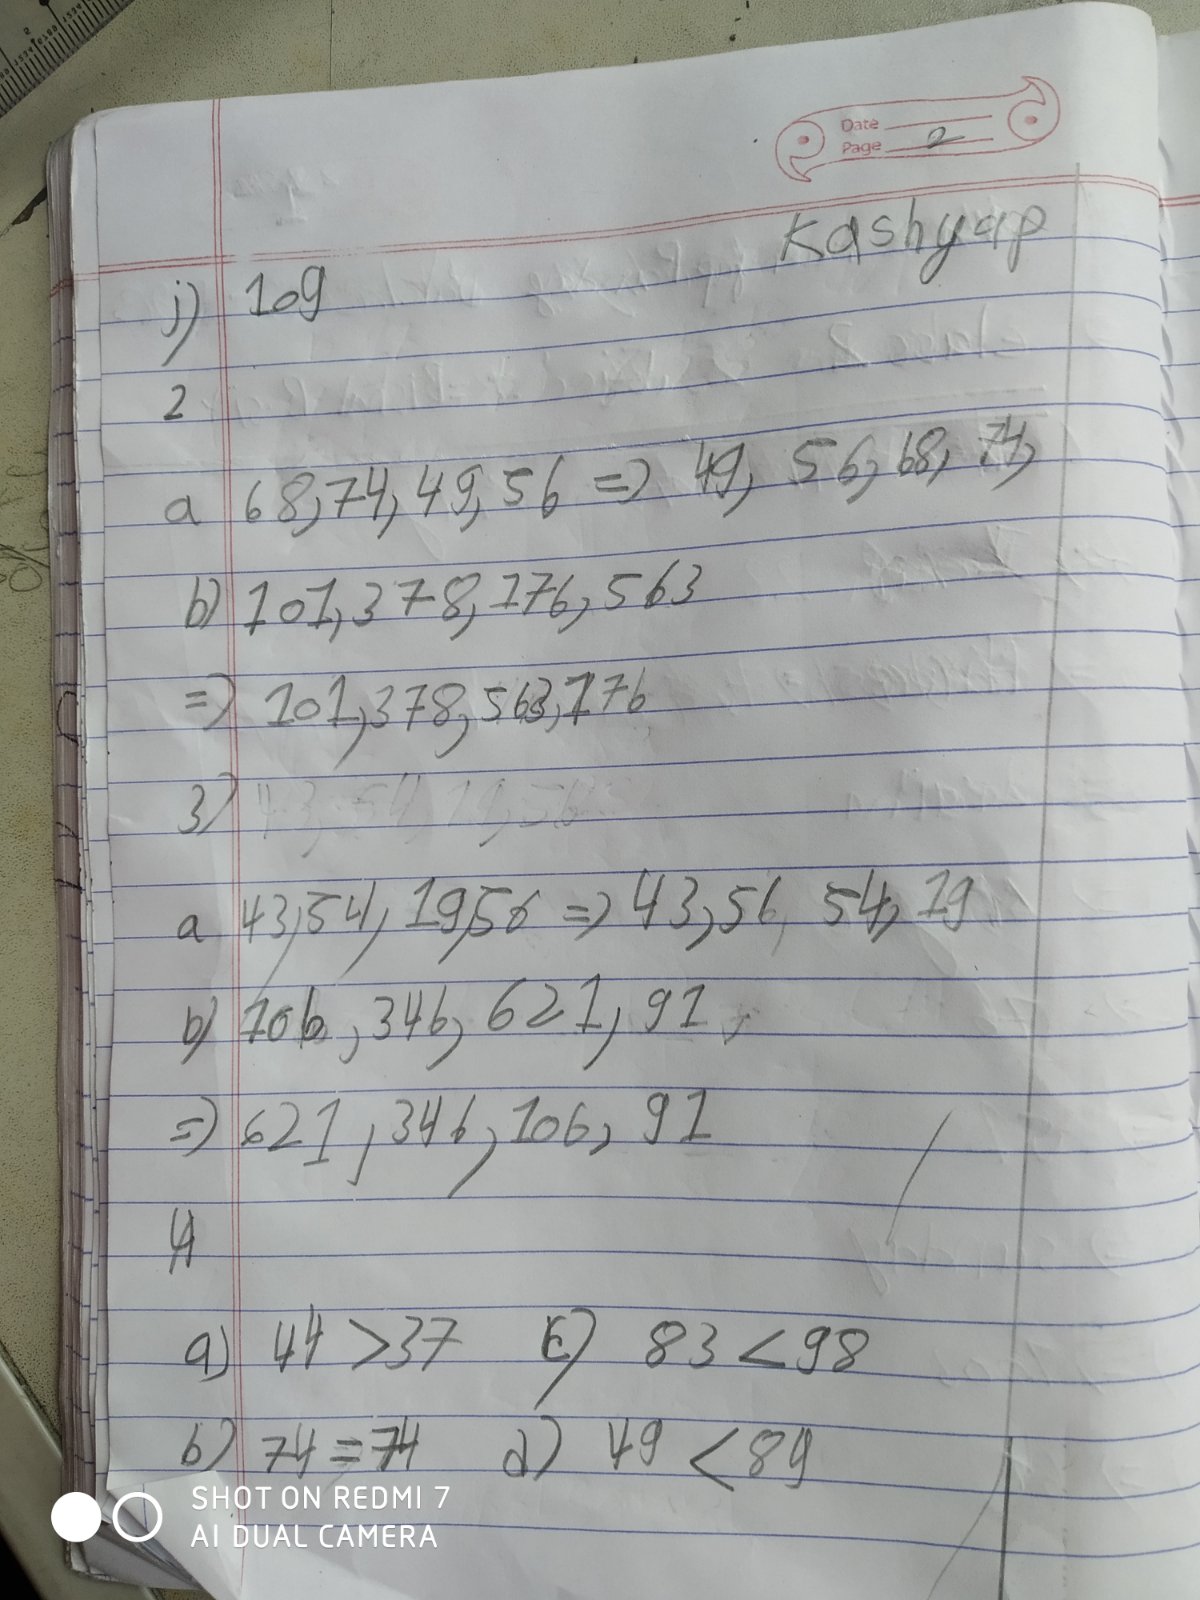 Date
Page 2
Kashyap
j) 109
2
a 68,74,49,56 => 49, 56,68,74,
b) 101,378,176,563
=> 101,378,563,176
3) 43,54,19,56
a 43,54,19,56 => 43,56, 54,19
b) 106,346,621,91,
=> 621,346,106,91
4
a) 44 >37 c) 83 <98
b) 74 = 74 d) 49 <89
SHOT ON REDMI 7
AI DUAL CAMERA